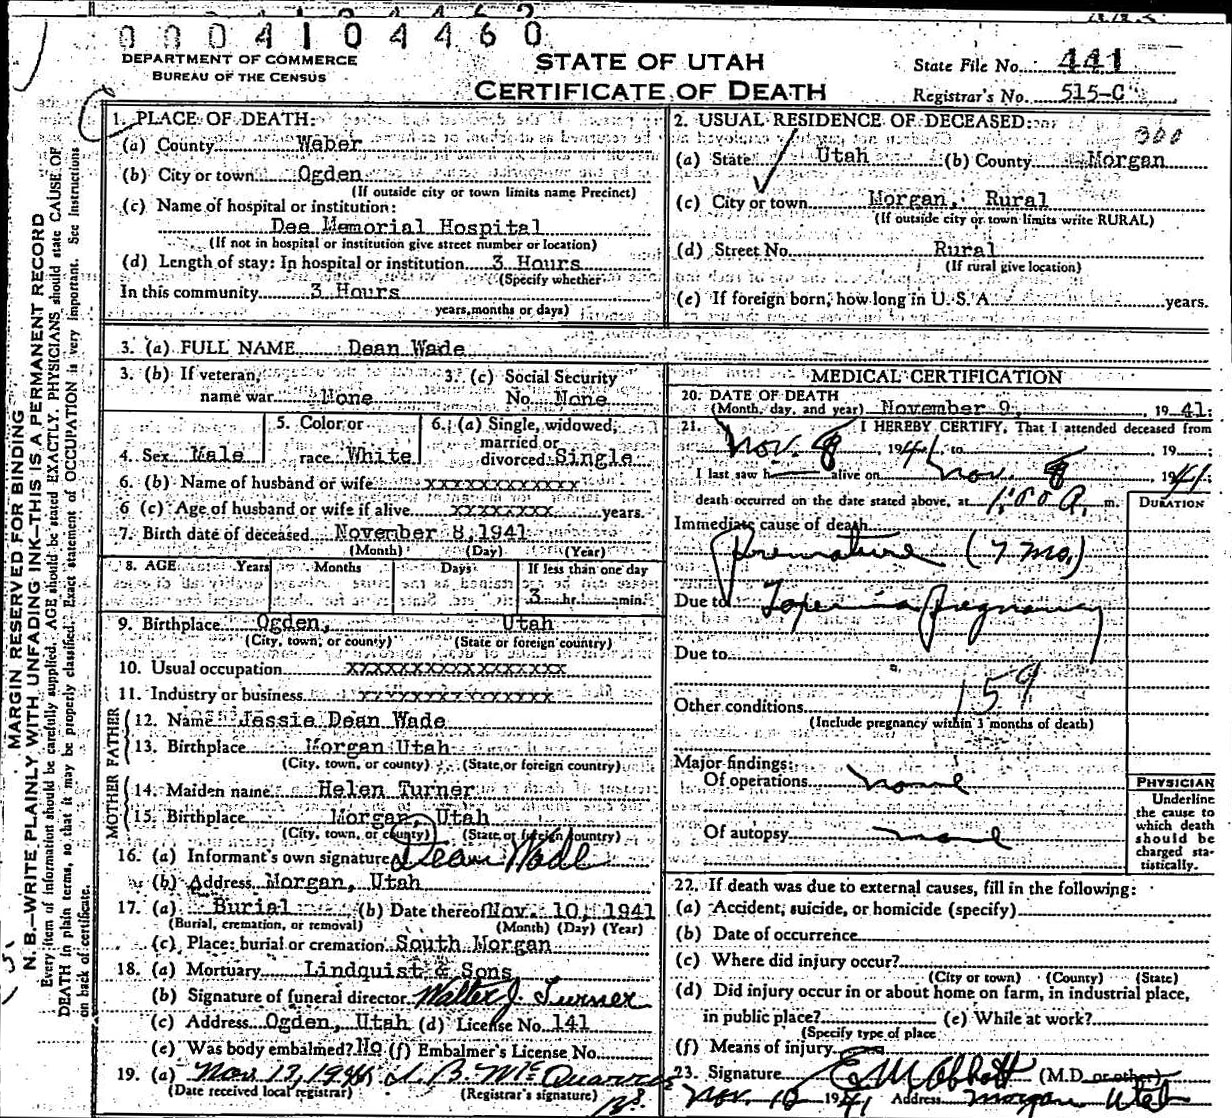 0 0 0 4 1 0 4 4 6 0
DEPARTMENT OF COMMERCE
BUREAU OF THE CENSUS
STATE OF UTAH
CERTIFICATE OF DEATH
State File No. 441
Registrar's No. 515-C
MARGIN RESERVED FOR BINDING
N. B.—WRITE PLAINLY WITH UNFADING INK—THIS IS A PERMANENT RECORD
Every item of information should be carefully supplied. AGE should be stated EXACTLY. PHYSICIANS should state CAUSE OF
DEATH in plain terms, so that it may be properly classified. Exact statement of OCCUPATION is very important. See Instructions
on back of certificate.
1. PLACE OF DEATH:
(a) County Weber
(b) City or town Ogden
(If outside city or town limits name Precinct)
(c) Name of hospital or institution:
Dee Memorial Hospital
(If not in hospital or institution give street number or location)
(d) Length of stay: In hospital or institution 3 Hours
(Specify whether
In this community 3 Hours
years, months or days)
2. USUAL RESIDENCE OF DECEASED:
300
(a) State Utah (b) County Morgan
(c) City or town Morgan, Rural
(If outside city or town limits write RURAL)
(d) Street No. Rural
(If rural give location)
(e) If foreign born, how long in U. S. A. years.
3. (a) FULL NAME Dean Wade
3. (b) If veteran, name war None
3. (c) Social Security No. None
4. Sex Male
5. Color or race White
6. (a) Single, widowed, married or divorced Single
6. (b) Name of husband or wife xxxxxxxxxxxxx
6 (c) Age of husband or wife if alive xxxxxxxx years.
7. Birth date of deceased November 8, 1941
(Month) (Day) (Year)
8. AGE Years Months Days If less than one day
3 hr. min.
9. Birthplace Ogden, Utah
(City, town, or county) (State or foreign country)
10. Usual occupation xxxxxxxxxxxxxxxxxx
11. Industry or business xxxxxxxxxxxxxxxx
FATHER
12. Name Jessie Dean Wade
13. Birthplace Morgan Utah
(City, town, or county) (State, or foreign country)
MOTHER
14. Maiden name Helen Turner
15. Birthplace Morgan, Utah
(City, town, or county) (State or foreign country)
16. (a) Informant's own signature Dean Wade
(b) Address Morgan, Utah
17. (a) Burial (b) Date thereof Nov. 10, 1941
(Burial, cremation, or removal) (Month) (Day) (Year)
(c) Place: burial or cremation South Morgan
18. (a) Mortuary Lindquist & Sons
(b) Signature of funeral director Walter J. Turner
(c) Address Ogden, Utah (d) License No. 141
(e) Was body embalmed? No (f) Embalmer's License No.
19. (a) Nov 17, 1941 J. B. McQuarrie
(Date received local registrar) (Registrar's signature)
MEDICAL CERTIFICATION
20. DATE OF DEATH
(Month, day, and year) November 9, 1941
21. I HEREBY CERTIFY, That I attended deceased from
Nov. 8, 1941, to , 19
I last saw h alive on Nov. 8 1941
death occurred on the date stated above, at 1:00 A. m.
DURATION
Immediate cause of death
Premature (7 mo.)
Due to Pregnancy
Due to
159
Other conditions
(Include pregnancy within 3 months of death)
Major findings:
Of operations none
Of autopsy none
PHYSICIAN
Underline
the cause to
which death
should be
charged sta-
tistically.
22. If death was due to external causes, fill in the following:
(a) Accident, suicide, or homicide (specify)
(b) Date of occurrence
(c) Where did injury occur?
(City or town) (County) (State)
(d) Did injury occur in or about home on farm, in industrial place,
in public place? (e) While at work?
(Specify type of place
(f) Means of injury
23. Signature E M Abbott (M.D. or other)
Nov. 10 1941 Address Morgan Utah